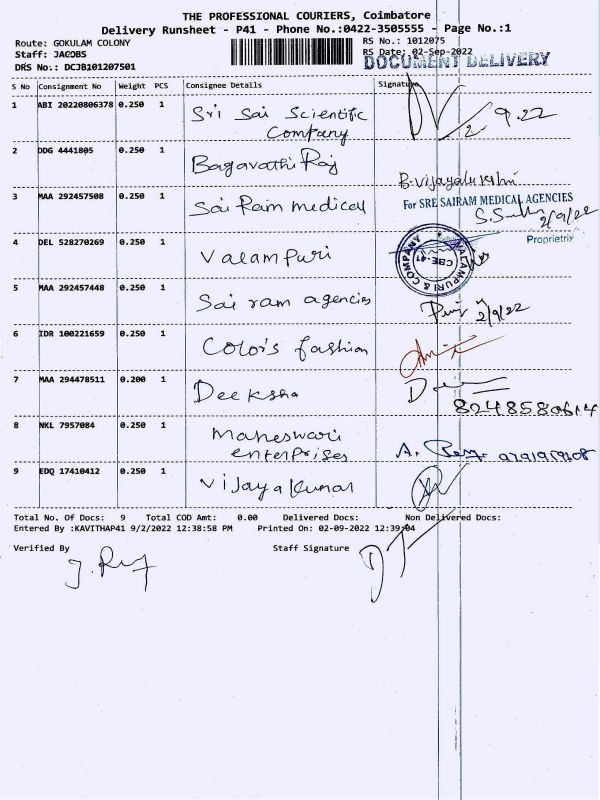 THE PROFESSIONAL COURIERS, Coimbatore
Delivery Runsheet - P41 - Phone No.:0422-3505555 - Page No.:1
Route: GOKULAM COLONY
RS No.: 1012075
Staff: JACOBS
RS Date: 02-Sep-2022
DRS No.: DCJB101207501
DOCUMENT DELIVERY
S No Consignment No Weight PCS Consignee Details Signature
1 ABI 20220806378 0.250 1 Sri Sai Scientific
Company
2/9.22
2 DDG 4441805 0.250 1 Bagavathi Raj
B. Vijayalakshmi
3 MAA 292457508 0.250 1 Sai Ram medical
For SRE SAIRAM MEDICAL AGENCIES
2/9/22
Proprietrix
4 DEL 528270269 0.250 1 Valampuri
VALAMPURI & COMPANY
CBE-41
5 MAA 292457448 0.250 1 Sai ram agencies
2/9/22
6 IDR 100221659 0.250 1 Color's fashion
7 MAA 294478511 0.200 1 Deeksha
8248580614
8 NKL 7957084 0.250 1 Maheswari
enterprises
9 EDQ 17410412 0.250 1 Vijayakumar
Total No. Of Docs: 9 Total COD Amt: 0.00 Delivered Docs: Non Delivered Docs:
Entered By :KAVITHAP41 9/2/2022 12:38:58 PM Printed On: 02-09-2022 12:39:04
Verified By Staff Signature